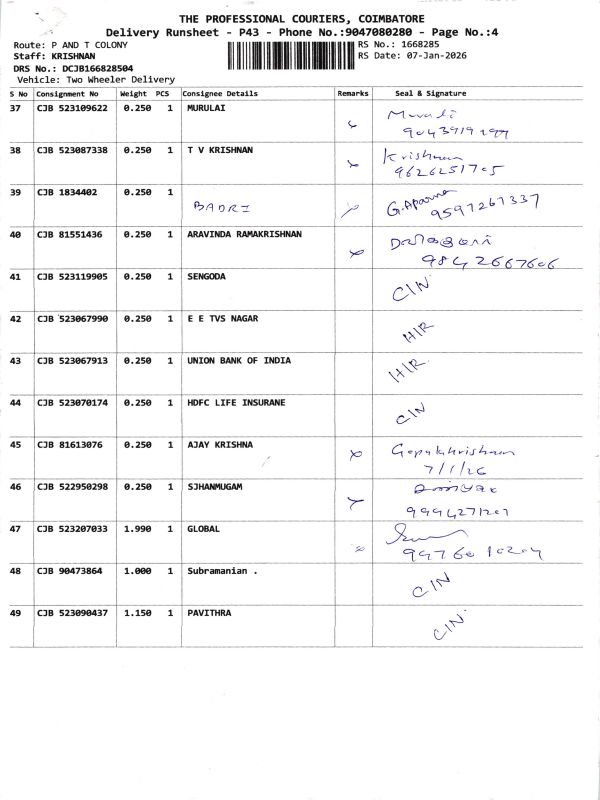 THE PROFESSIONAL COURIERS, COIMBATORE
Delivery Runsheet - P43 - Phone No.:9047080280 - Page No.:4
Route: P AND T COLONY
RS No.: 1668285
Staff: KRISHNAN
RS Date: 07-Jan-2026
DRS No.: DCJB166828504
Vehicle: Two Wheeler Delivery
S No Consignment No Weight PCS Consignee Details Remarks Seal & Signature
37 CJB 523109622 0.250 1 MURULAI Murali
38 CJB 523087338 0.250 1 T V KRISHNAN Krishnan
9626251705
39 CJB 1834402 0.250 1 BADRI G.Aparna
9597267337
40 CJB 81551436 0.250 1 ARAVINDA RAMAKRISHNAN
9842667606
41 CJB 523119905 0.250 1 SENGODA C/N
42 CJB 523067990 0.250 1 E E TVS NAGAR H/R
43 CJB 523067913 0.250 1 UNION BANK OF INDIA H/R
44 CJB 523070174 0.250 1 HDFC LIFE INSURANE C/N
45 CJB 81613076 0.250 1 AJAY KRISHNA Gopalakrishnan
7/1/26
46 CJB 522950298 0.250 1 SJHANMUGAM
9994271207
47 CJB 523207033 1.990 1 GLOBAL
48 CJB 90473864 1.000 1 Subramanian . C/N
49 CJB 523090437 1.150 1 PAVITHRA C/N